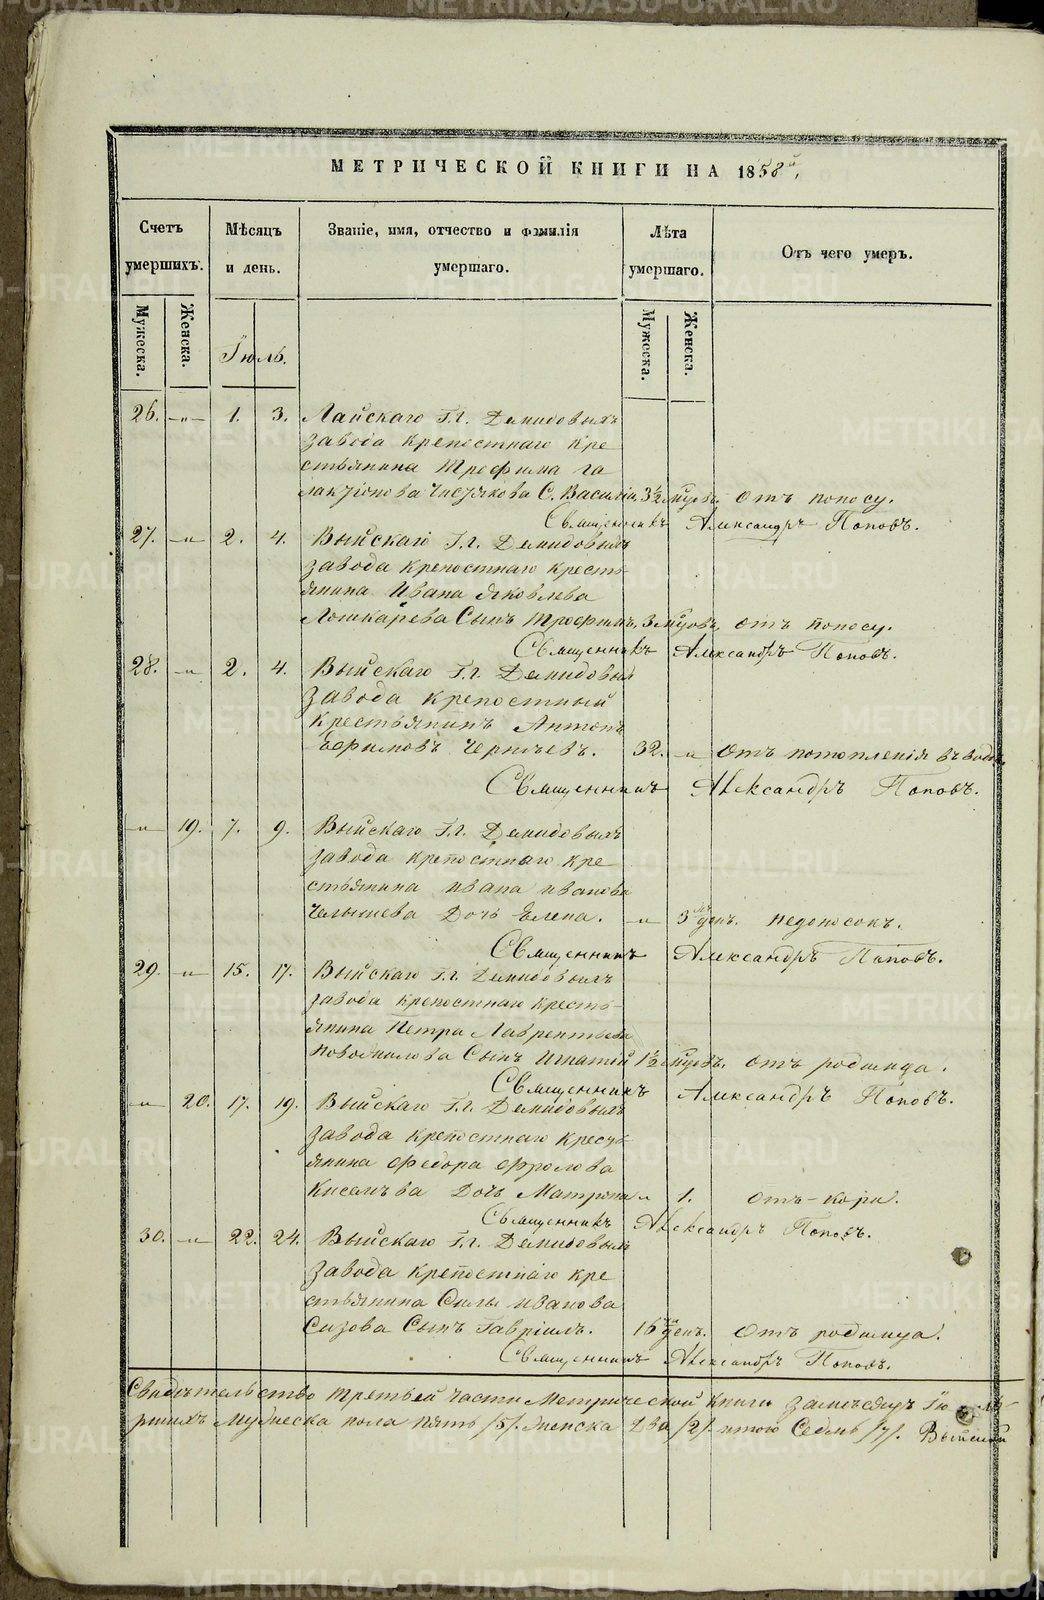 МЕТРИЧЕСКОЙ КНИГИ НА 1858й,
Счетъ умершихъ.
Мѣсяцъ и день.
Званіе, имя, отчество и фамилія умершаго.
Лѣта умершаго.
Отъ чего умеръ.
Мужеска.
Женска.
Іюль.
Мужеска.
Женска.
26. -"- 1. 3. Лайскаго Г.г. Демидовыхъ
завода крепостнаго кре
стьянина Трофима Га
лактіонова С. Василій 3½ мцовъ. отъ поносу.
Священникъ Александръ Поповъ.
27. -"- 2. 4. Выйскаго Г.г. Демидовыхъ
завода крепостнаго кресть
янина Ивана Яковлева
Лошкарева Сынъ Трофимъ, 3 мцовъ, отъ поносу.
Священникъ Александръ Поповъ.
28. -"- 2. 4. Выйскаго Г.г. Демидовыхъ
завода крепостный
крестьянинъ Антонъ
Ефимовъ 32. -"- отъ потопленія въ водѣ.
Священникъ Александръ Поповъ.
-"- 19. 7. 9. Выйскаго Г.г. Демидовыхъ
завода крепостнаго кре
стьянина Ивана Иванова
Челышева Дочь Елена. -"- 3 ден. недоносокъ.
Священникъ Александръ Поповъ.
29. -"- 15. 17. Выйскаго Г.г. Демидовыхъ
завода крепостнаго кресть-
янина Петра Лаврентьева
Сынъ Игнатій 1½ мцовъ. отъ родимца.
Священникъ Александръ Поповъ.
-"- 20. 17. 19. Выйскаго Г.г. Демидовыхъ
завода крепостнаго кресть
янина Федора Фролова
Дочь Матрона -"- 1. отъ-кори.
Священникъ Александръ Поповъ.
30. -"- 22. 24. Выйскаго Г.г. Демидовыхъ
завода крепостнаго кре
стьянина Силы Иванова
Сизова Сынъ Гавріилъ. 16 ден. отъ родимца.
Священникъ Александръ Поповъ.
Свидѣтельство третьей части Метрической книги За мѣсяцъ Іюль
мужеска пола пять /5/. женска два /2/. итого Седмь /7/. Выйской
METRIKI.GASO-URAL.RU